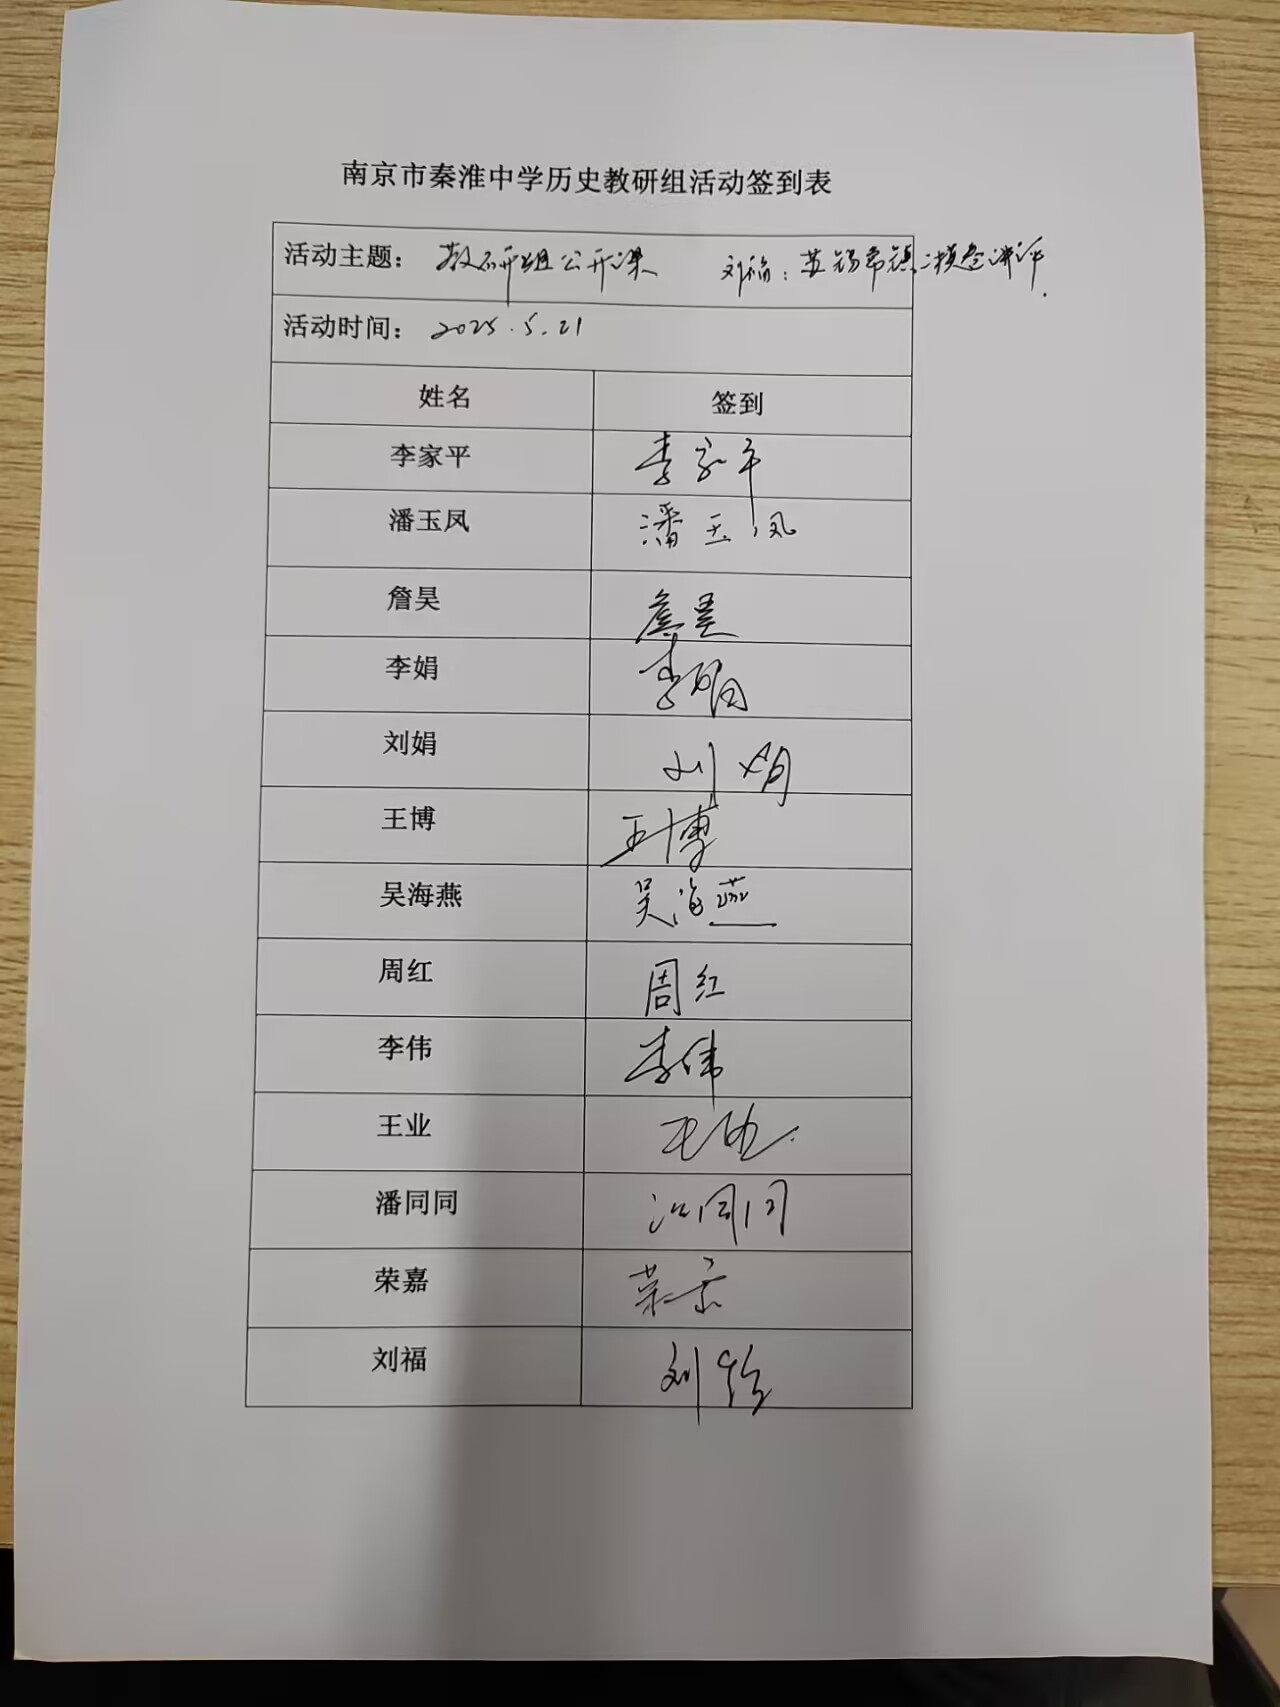 南京市秦淮中学历史教研组活动签到表
活动主题： 教研组公开课 刘福：苏锡常镇二模卷讲评.
活动时间： 2025.5.21
姓名 签到
李家平 李家平
潘玉凤 潘玉凤
詹昊 詹昊
李娟 李娟
刘娟 刘娟
王博 王博
吴海燕 吴海燕
周红 周红
李伟 李伟
王业 王业
潘同同 潘同同
荣嘉 荣嘉
刘福 刘福